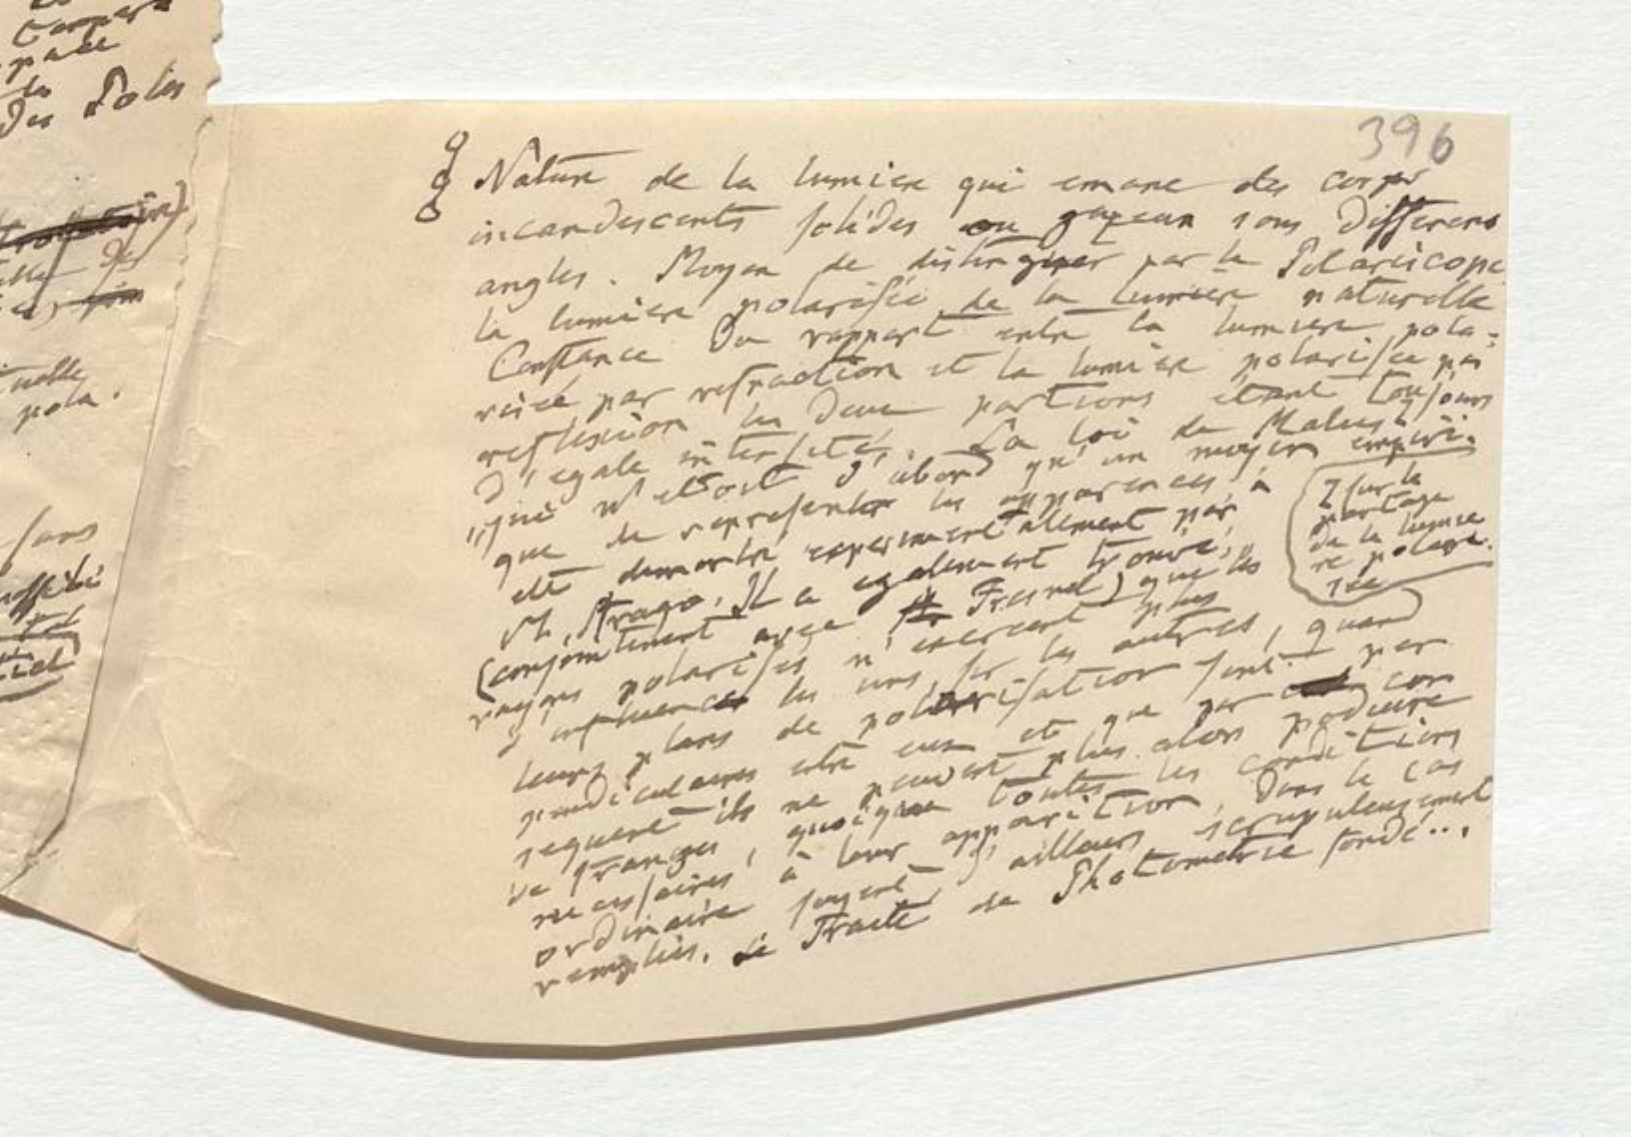 396
Nature de la lumiere qui emane des corps
incandescents solides ou gazeux sous differens
angles. Moyen de distinguer par le Polariscope
la lumiere polarisée de la lumiere naturelle
Constance du rapport entre la lumiere pola=
risée par refraction et la lumiere polarisée par
reflexion les deux portions étant toujours
d'egale intensité. La loi de Malus
qui n'etoit d'abord qu'un moyen empiri-
que de representer les apparences, a
été demontré experimentalement par
M. Arago. Il a egalement trouvé,
(conjointement avec Fresnel) que les
rayons polarisés n'exercent plus
d'influence les uns sur les autres, quand
leurs plans de polarisation sont per
pendiculaires entre eux et que par con
sequent ils ne peuvent plus alors produire
de franges, quoique toutes les conditions
necessaires à leur apparition, dans le cas
ordinaire soyent d'ailleurs scrupuleusement
remplies. Le Traité de Photometrie fondé...
sur le
partage
de la lumie
re polari
sée
des Poles
pola.
sans